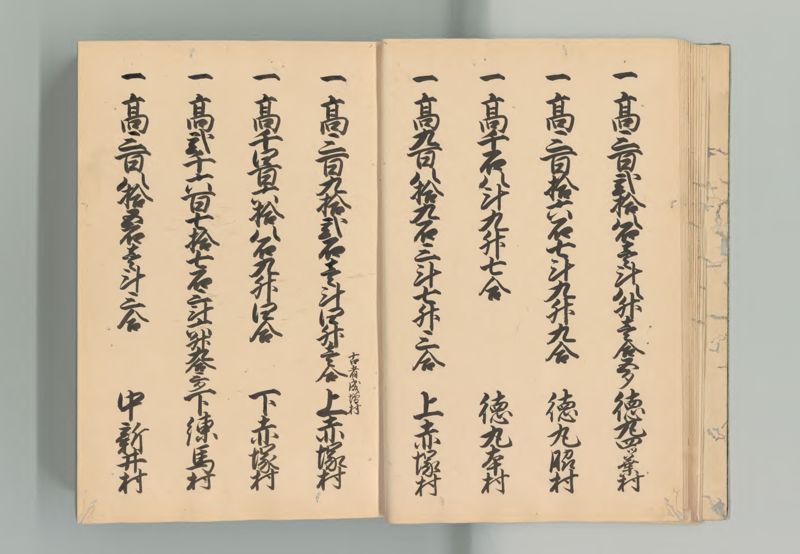 一 高三百弐拾八石壱斗八升壱合 徳丸四ツ葉村
一 高三百拾六石七斗九升九合 徳丸脇村
一 高十石八斗九升七合 徳丸本村
一 高九百八拾九石三斗七升三合 上赤塚村
一 高三百九拾弐石壱斗四升壱合 上赤塚村
古者成増村
一 高千四百拾八石九升四合 下赤塚村
一 高弐千六百七拾七石 下練馬村
一 高三百八拾五石壱斗三合 中新井村